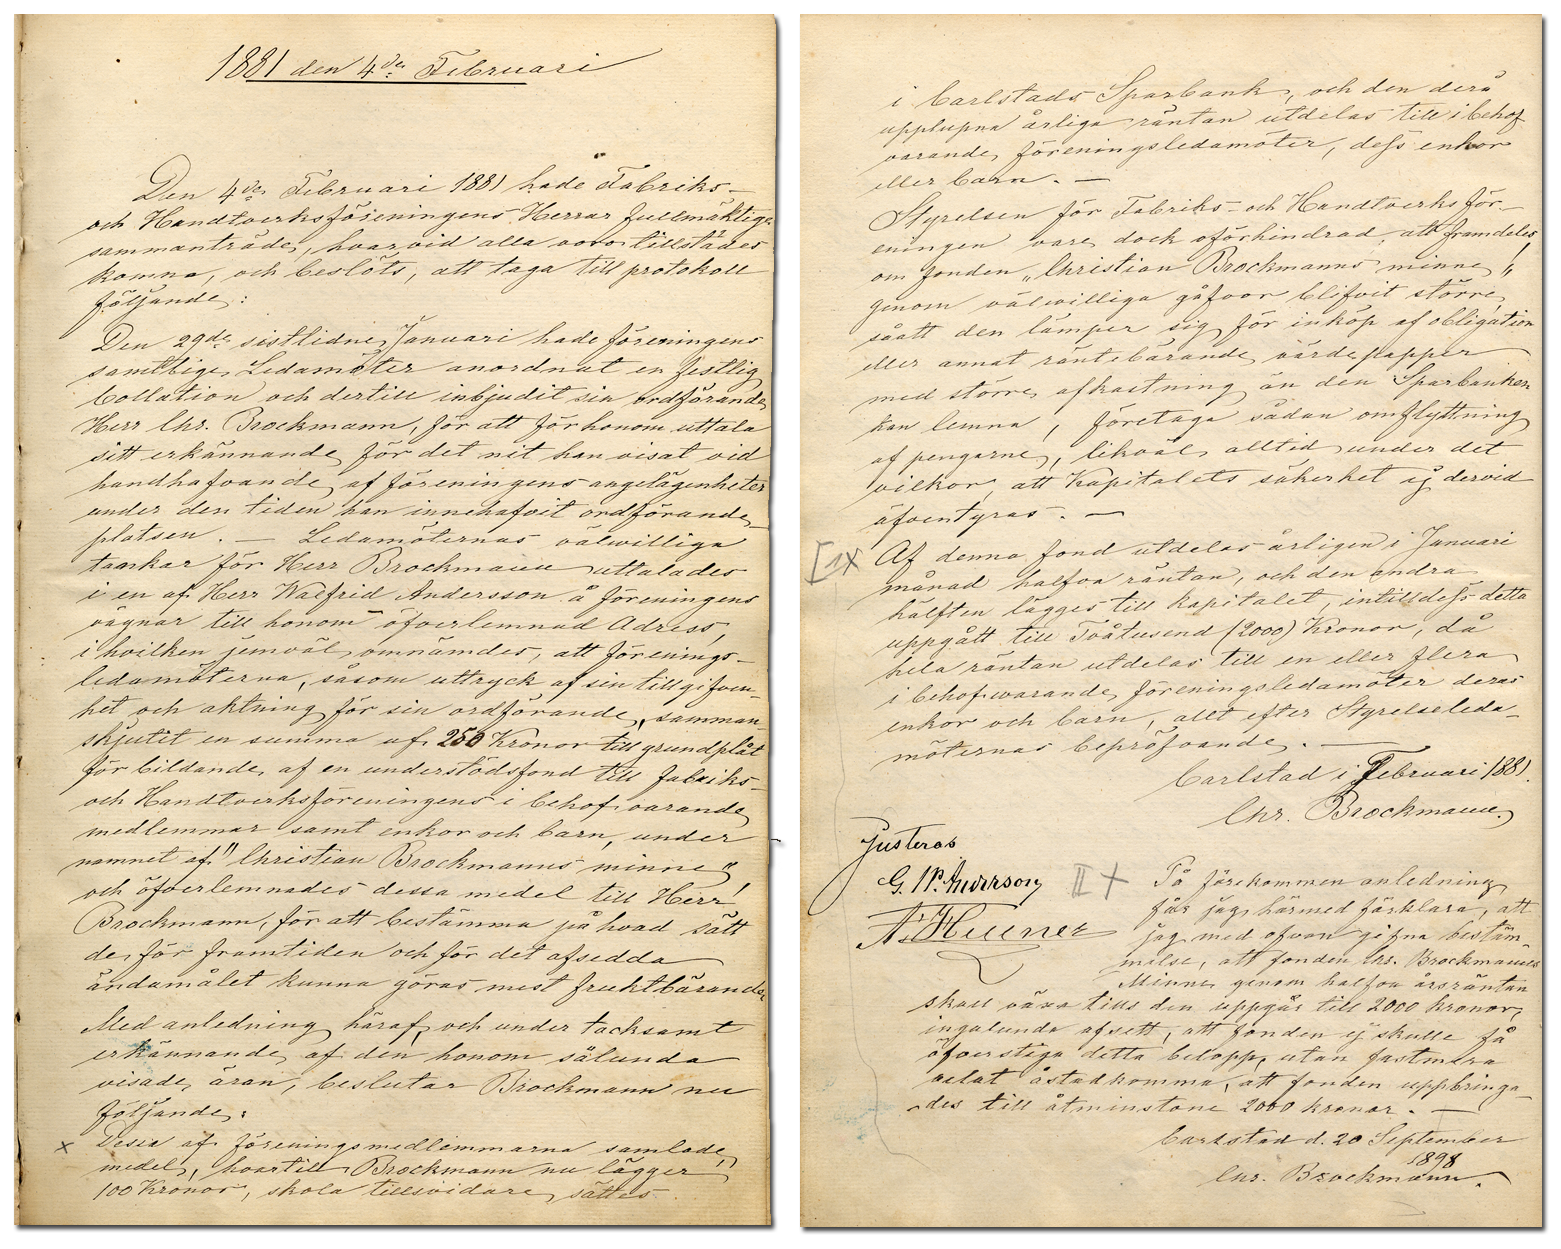 1881 den 4de Februari
Den 4de Februari 1881 hade Fabriks-
och Handtverksföreningens Herrar fullmäktige
sammanträde, hvarvid alla voro tillstädes
komna, och beslöts, att taga till protokoll
följande:
Den 29de sistlidne Januari hade föreningens
samtlige Ledamöter anordnat en festlig
Collation och dertill inbjudit sin ordförande
Herr Chr. Brockmann, för att för honom uttala
sitt erkännande för det nit han visat vid
handhafvande af föreningens angelägenheter
under den tiden han innehafvit ordförande-
platsen. — Ledamöternas välwilliga
tankar för Herr Brockmann uttalades
i en af Herr Walfrid Andersson å föreningens
vägnar till honom öfverlemnad Adress,
i hvilken jemväl omnämdes, att förenings-
ledamöterna, såsom uttryck af sin tillgifven-
het och aktning för sin ordförande, samman-
skjutit en summa af 250 Kronor till grundplåt
för bildande af en understödsfond till Fabriks-
och Handtverksföreningens i behof varande
medlemmar samt enkor och barn, under
namnet af "Christian Brockmanns minne"
och öfverlemnades dessa medel till Herr
Brockmann, för att bestämma på hvad sätt
de för framtiden och för det afsedda
ändamålet kunna göras mest fruktbärande.
Med anledning häraf, och under tacksamt
erkännande af den honom sålunda
visade äran, beslutar Brockmann nu
följande:
x Dessa af föreningsmedlemmarna samlade
medel, hvartill Brockmann nu lägger
100 Kronor, skola tillsvidare sättes
i Carlstads Sparbank, och den derå
upplupna årliga räntan utdelas till i behof
varande föreningsledamöter, dess enkor
eller barn. —
Styrelsen för Fabriks- och Handtverksför-
eningen vare dock oförhindrad, att framdeles,
om fonden „Christian Brockmanns minne"
genom välwilliga gåfvor blifvit större,
såatt den lämper sig för inköp af obligation
eller annat räntebärande värdepapper
med större afkastning än den Sparbanken
kan lemna, företaga sådan omflyttning
af pengarne, likväl alltid under det
vilkor, att Kapitalets säkerhet ej dervid
äfventyras. —
[1x Af denna fond utdelas årligen i Januari
månad halfva räntan, och den andra
hälften lägges till kapitalet, intilldess detta
uppgått till Tvåtusend (2000) Kronor, då
hela räntan utdelas till en eller flera
i behof warande föreningsledamöter deras
enkor och barn, allt efter Styrelseleda-
möternas bepröfvande. —
Carlstad i Februari 1881.
Chr. Brockmann.
Justeras
G. W. Andersson
A. F. Huener
II x På förekommen anledning
får jag härmed förklara, att
jag med ofvan gifna bestäm-
melse, att fonden Chr. Brockmanns
Minne genom halfva årsräntan
skall växa tills den uppgår till 2000 kronor,
ingalunda afsett, att fonden ej skulle få
öfverstiga detta belopp, utan fastmera
velat åstadkomma, att fonden uppbringa-
des till åtminstone 2000 kronor. —
Carlstad d. 20 September
1898
Chr. Brockmann.